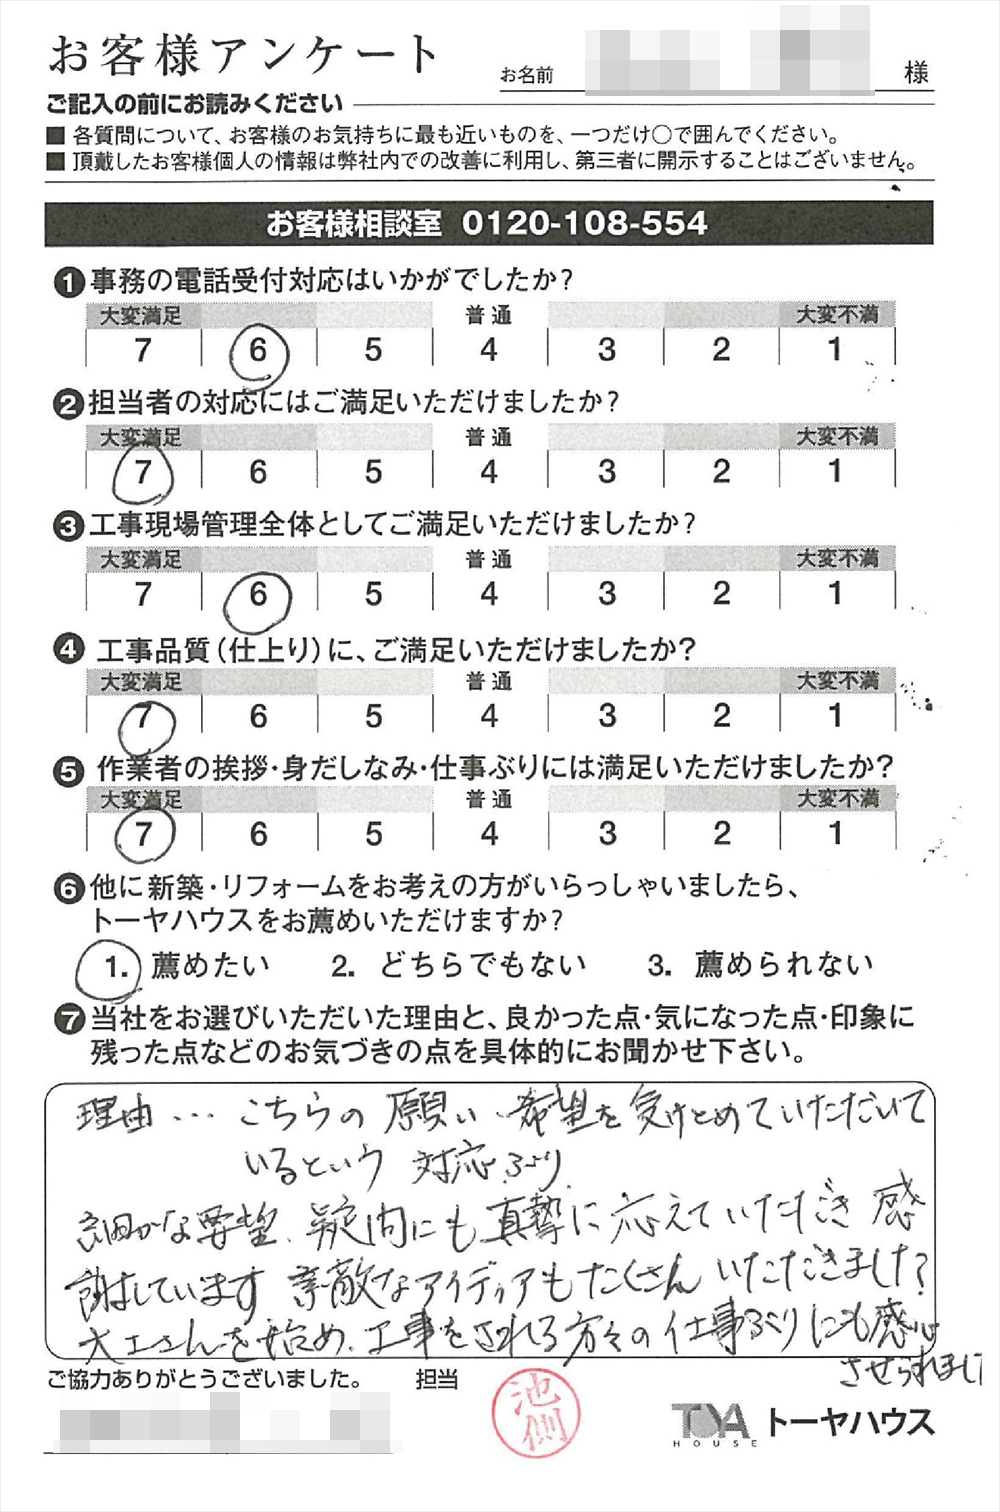 お客様アンケート
お名前 様
ご記入の前にお読みください
■ 各質問について、お客様のお気持ちに最も近いものを、一つだけ○で囲んでください。
■ 頂戴したお客様個人の情報は弊社内での改善に利用し、第三者に開示することはございません。
お客様相談室 0120-108-554
❶事務の電話受付対応はいかがでしたか?
大変満足 普通 大変不満
7 6 5 4 3 2 1
❷担当者の対応にはご満足いただけましたか?
大変満足 普通 大変不満
7 6 5 4 3 2 1
❸工事現場管理全体としてご満足いただけましたか?
大変満足 普通 大変不満
7 6 5 4 3 2 1
❹ 工事品質(仕上り)に、ご満足いただけましたか?
大変満足 普通 大変不満
7 6 5 4 3 2 1
❺ 作業者の挨拶・身だしなみ・仕事ぶりには満足いただけましたか?
大変満足 普通 大変不満
7 6 5 4 3 2 1
❻他に新築・リフォームをお考えの方がいらっしゃいましたら、
トーヤハウスをお薦めいただけますか?
1. 薦めたい 2. どちらでもない 3. 薦められない
❼当社をお選びいただいた理由と、良かった点・気になった点・印象に
残った点などのお気づきの点を具体的にお聞かせ下さい。
理由… こちらの願い、希望を受けとめていただいて
いるという 対応ぶり
細かな要望、疑問にも真摯に応えていただき 感
謝しています 素敵なアイディアもたくさん いただきました?
大工さんを始め、工事をされる方々の仕事ぶりにも感心
させられまし
ご協力ありがとうございました。 担当 池側
TOYA HOUSE トーヤハウス